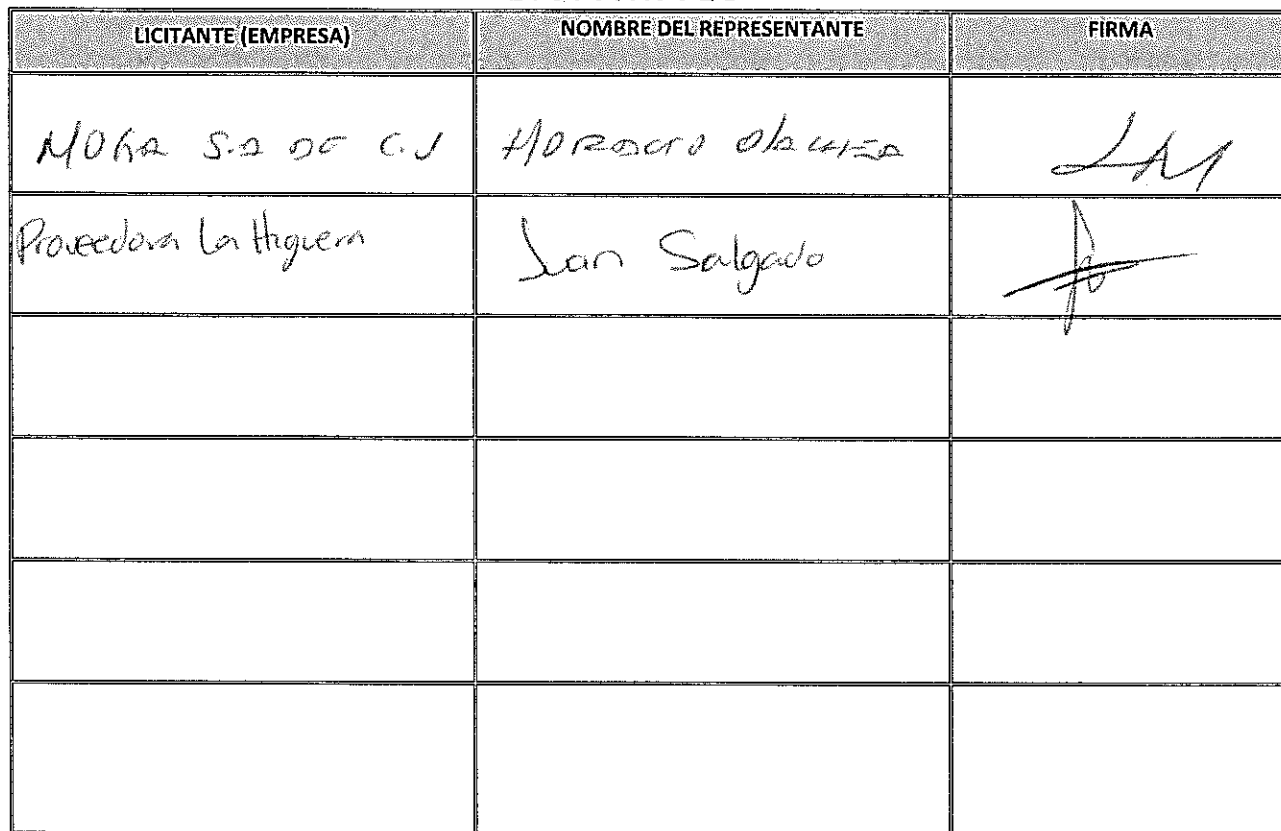 LICITANTE (EMPRESA) NOMBRE DEL REPRESENTANTE FIRMA
S.A DE C.V HORACIO
Proveedora La Higuera Juan Salgado